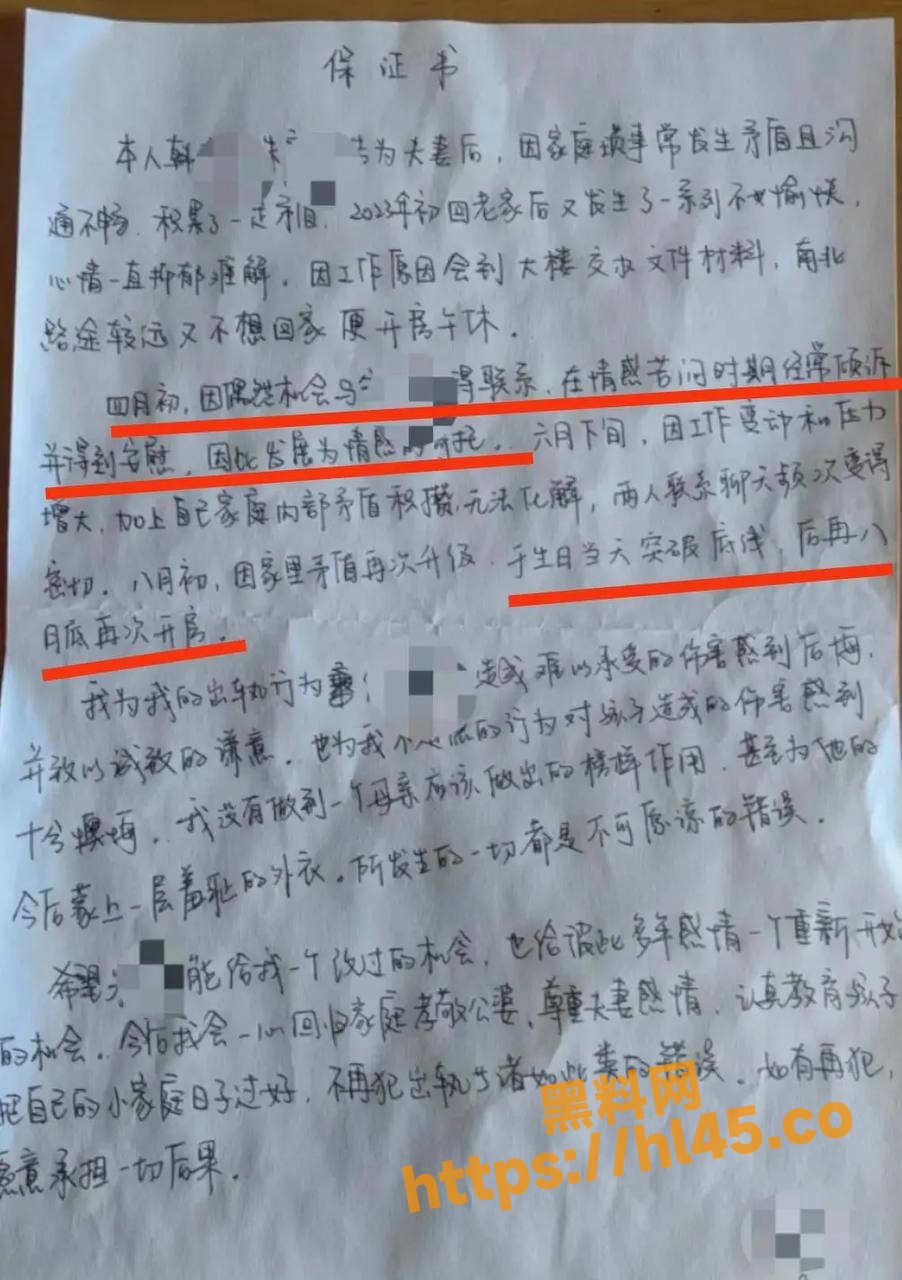 保证书
本人韩 为夫妻后，因家庭琐事常发生矛盾且沟
通不畅，积累了一定矛盾。2023年初回老家后又发生了一系列不愉快，
心情一直抑郁难解。因工作原因会到大楼交办文件材料，南北
路途较远又不想回家便开房午休。
四月初，因偶然机会与 得联系，在情感苦闷时期经常倾诉
并得到安慰，因此发展为情感的寄托。六月下旬，因工作变动和压力
增大，加上自己家庭内部矛盾积攒无法化解，两人联系聊天频次变得
密切。八月初，因家里矛盾再次升级，于生日当天突破底线，后再八
月底再次开房。
我为我的出轨行为 造成难以承受的伤害感到后悔，
并致以诚致的谦意。也为我个人 的行为对孩子造成的伤害感到
十分懊悔，我没有做到一个母亲应该做出的榜样作用，甚至为他的
今后蒙上一层羞耻的外衣。所发生的一切都是不可原谅的错误。
希望 能给我一个改过的机会，也给彼此多年感情一个重新开始
的机会。今后我会一心回归家庭孝敬公婆、尊重夫妻感情，认真教育孩子
把自己的小家庭日子过好，不再犯出轨 诸如此类的错误。如有再犯，
愿意承担一切后果。
黑料网
https://hl45.co